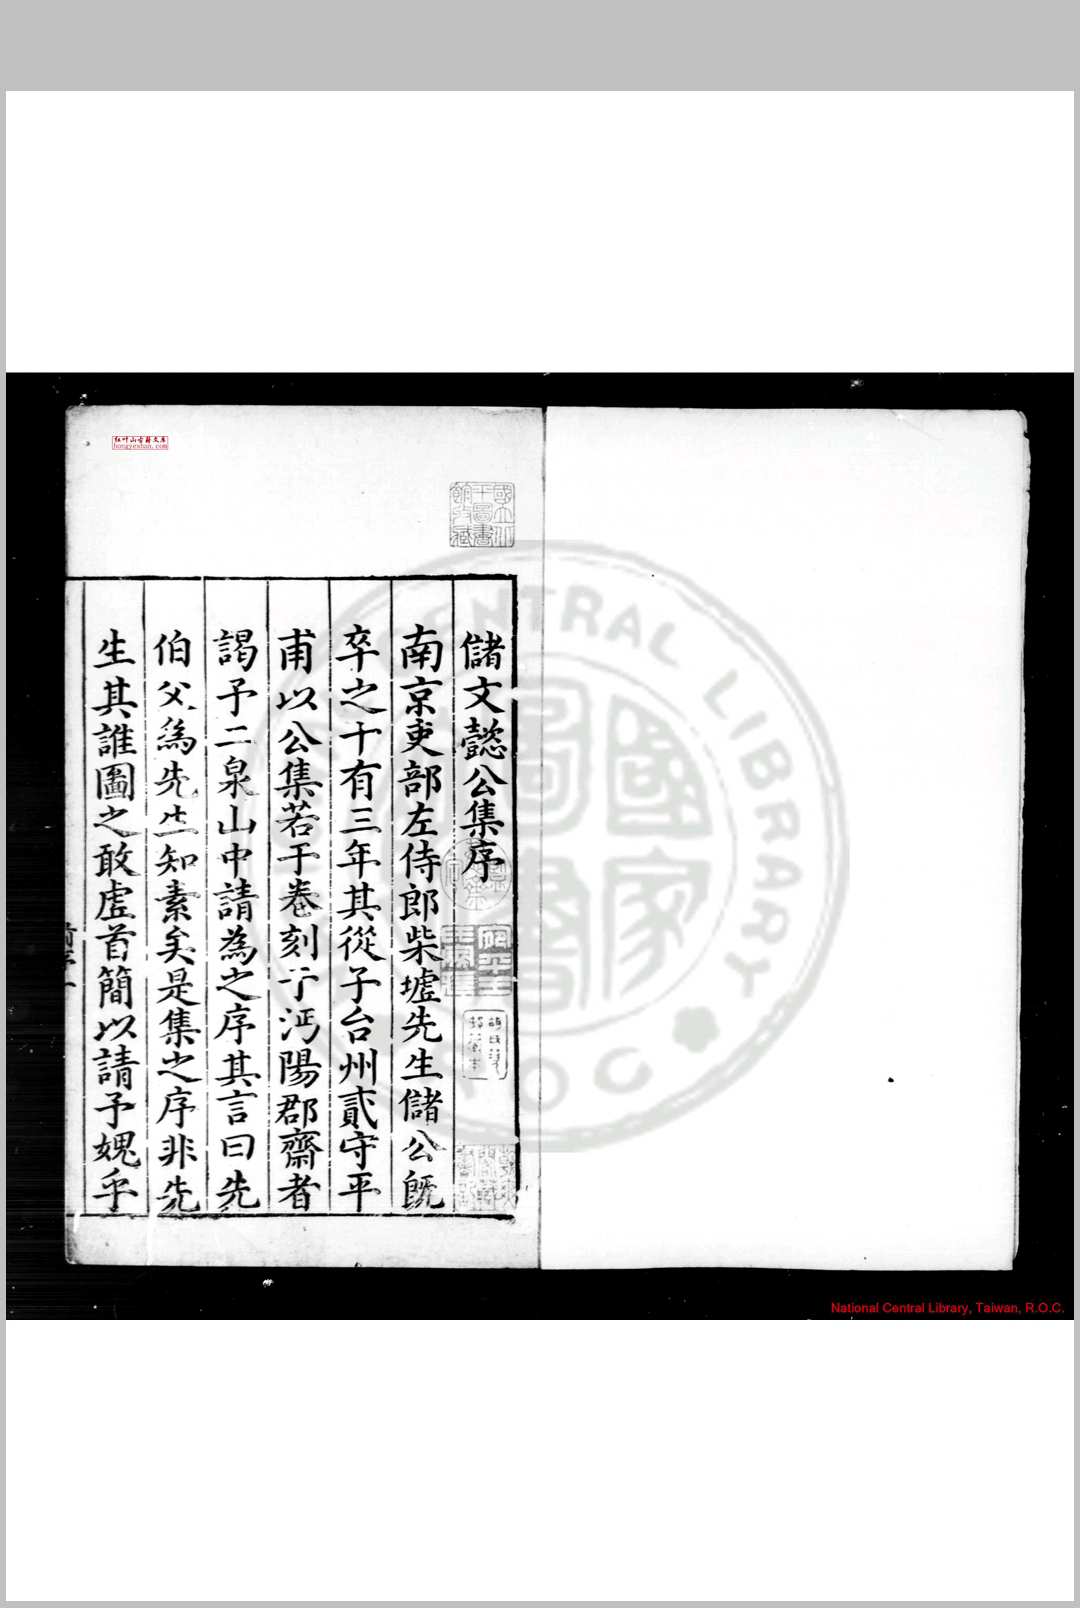 儲文懿公集序
南京吏部左侍郎柴墟先生儲公既
卒之十有三年其從子台州貳守平
甫以公集若干卷刻于沔陽郡齋者
謁予二泉山中請為之序其言曰先
伯父爲先生知素矣是集之序非先
生其誰圖之敢虛首簡以請予媿乎
前序一
國立中央圖書館收藏
红叶山古籍文库
hongyeshan.com
CENTRAL LIBRARY
國家圖書
ROC
National Central Library, Taiwan, R.O.C.